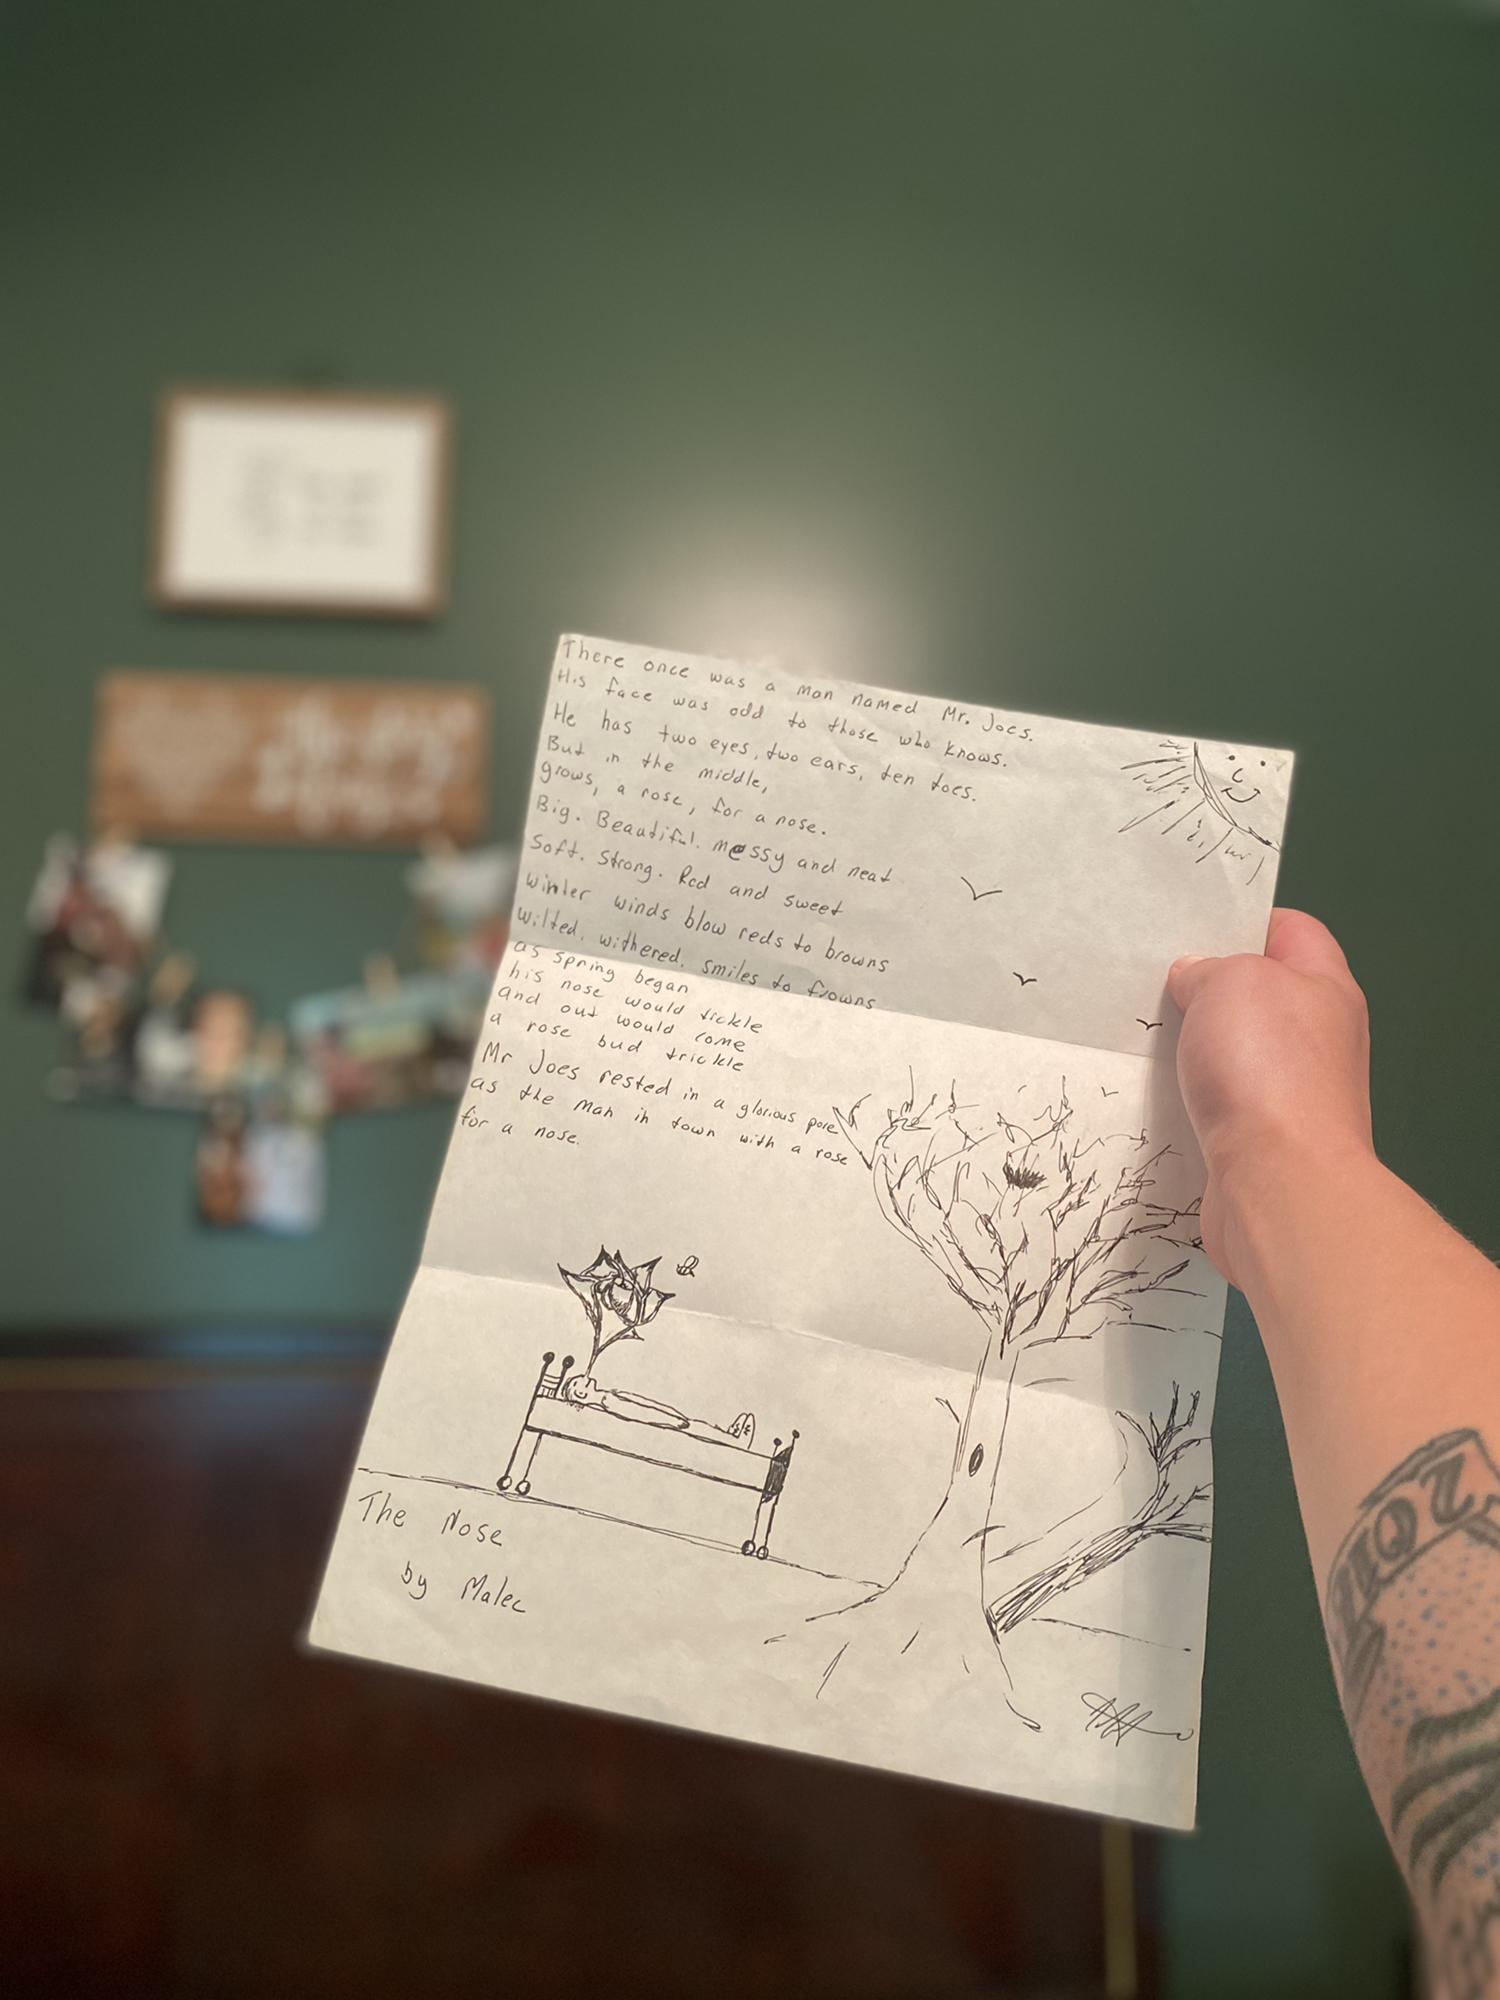 There once was a man named Mr. Joes.
His face was odd to those who knows.
He has two eyes, two ears, ten toes.
But in the middle,
grows, a rose, for a nose.
Big. Beautiful. messy and neat
Soft. Strong. Red and sweet
winter winds blow reds to browns
wilted. withered. smiles to frowns
as spring began
his nose would tickle
and out would come
a rose bud trickle
Mr Joes rested in a glorious pose
as the man in town with a rose
for a nose.
The Nose
by Malec